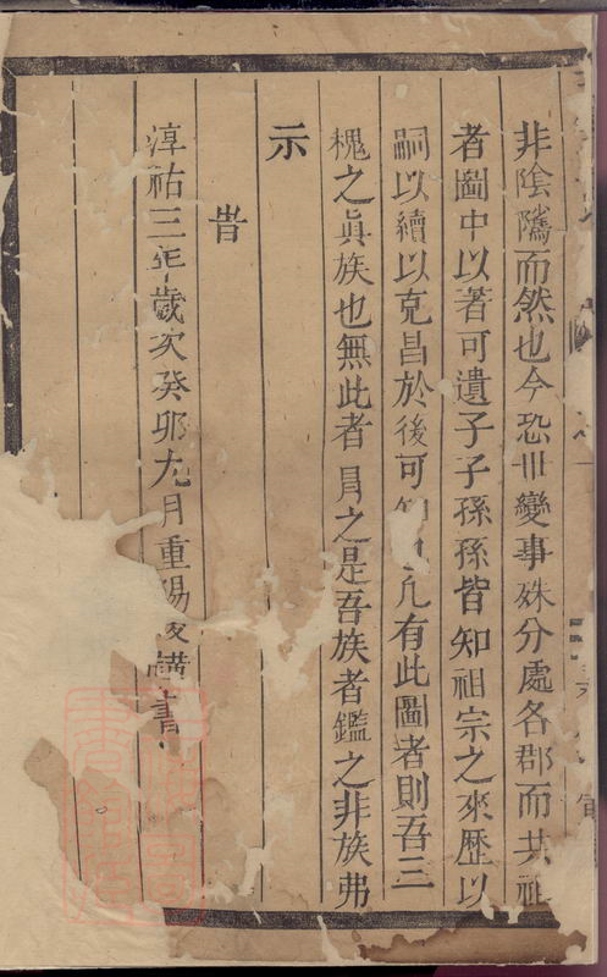 非陰隲而然也今恐卌變事殊分處各郡而共祖
者圖中以著可遺子子孫孫皆知祖宗之來歷以
嗣以續以克昌於後可知凡有此圖者則吾三
槐之眞族也無此者㠯之是吾族者鑑之非族弗
示
昔
淳祐三年歲次癸卯九月重陽後 書